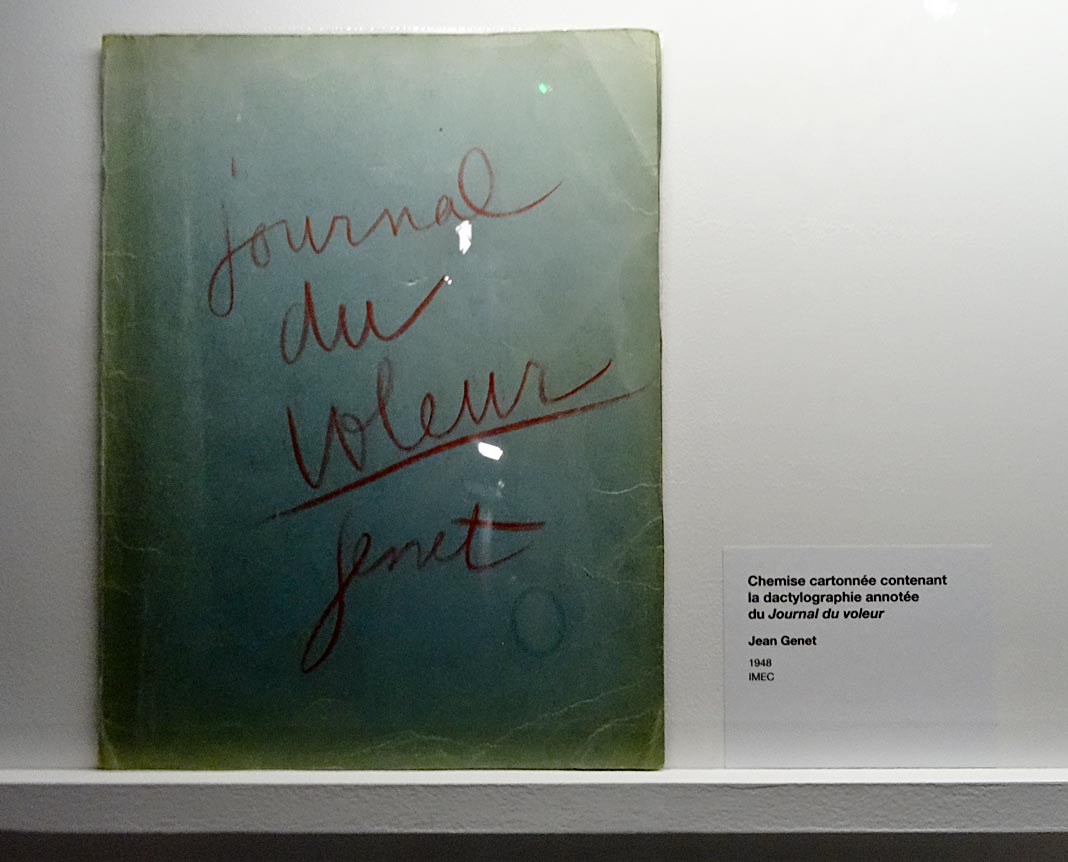 journal
du
voleur
Genet
Chemise cartonnée contenant
la dactylographie annotée
du Journal du voleur
Jean Genet
1948
IMEC